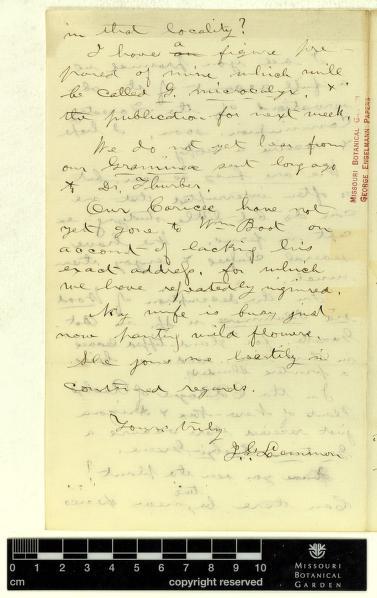 in that locality?
I have a an figure pre-
pared of mine, which will
be called G. microcalyx. &
the publication for next week.
We do not yet hear from
our Gramineæ sent long ago
to Dr. Thurber.
Our Caricea have not
yet gone to Wm Boot on
account of lacking his
exact address, for which
we have repeatedly inquired.
My wife is busy just
now painting wild flowers.
She joins me heartily in
continued regards.
Yours truly
J.G. Lemmon
MISSOURI BOTANICAL GARDEN
GEORGE ENGELMANN PAPERS
0 1 2 3 4 5 6 7 8 9 10
cm
copyright reserved
MISSOURI
BOTANICAL
GARDEN